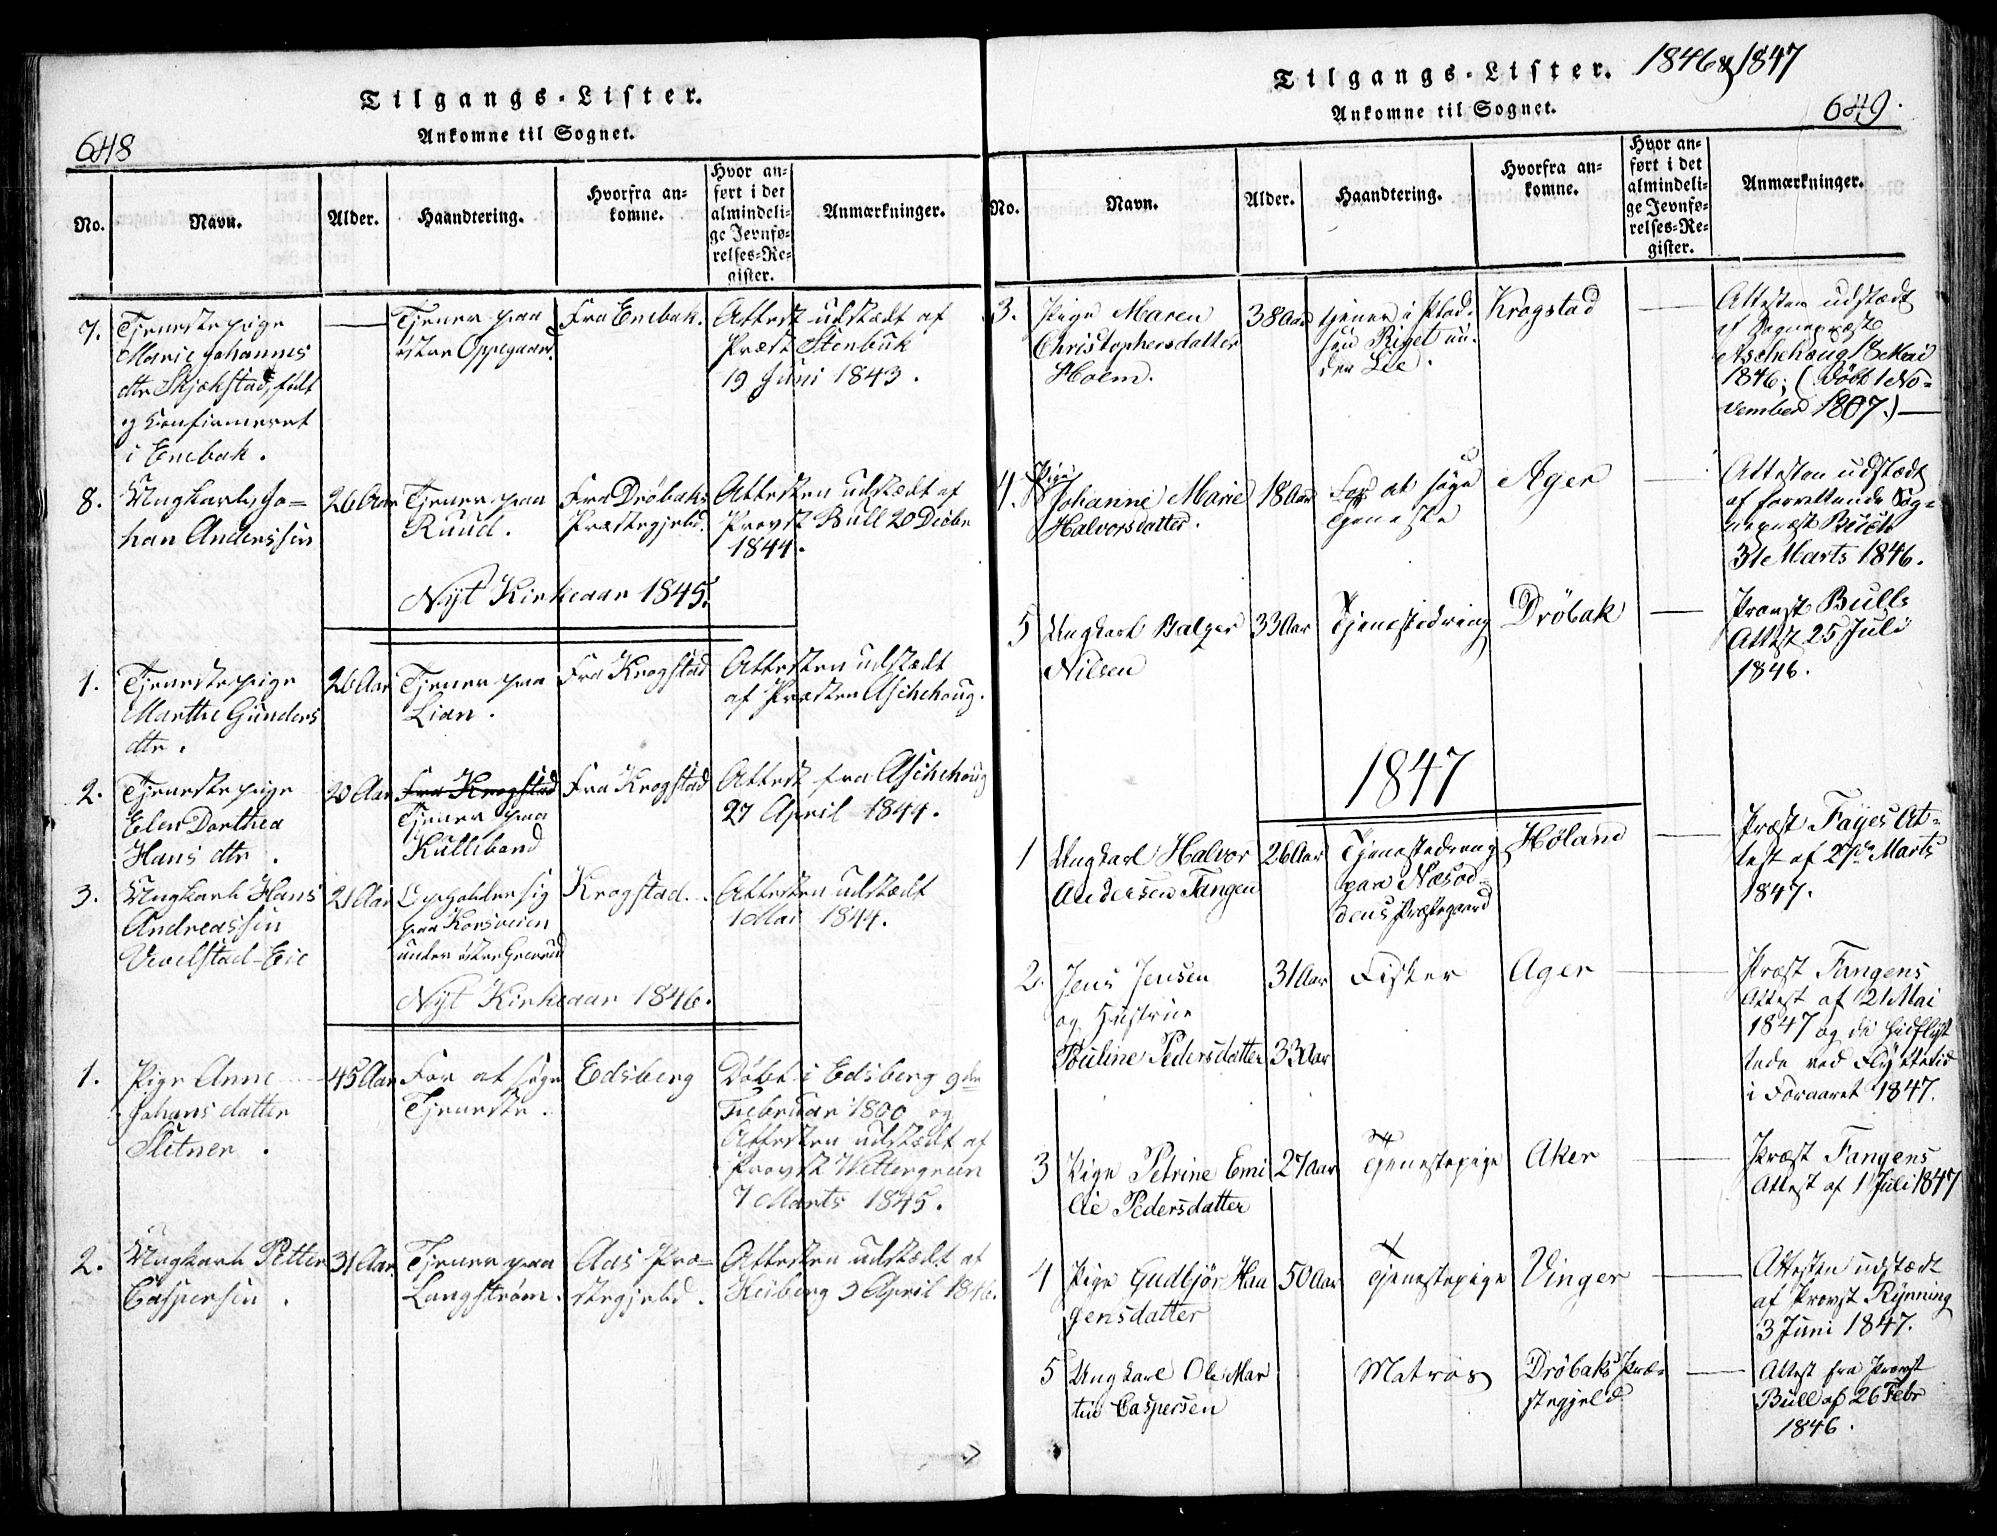 Tilgangs-Lister.
648
Ankomne til Sognet.
No.
Navn.
Alder.
Haandtering.
Hvorfra an-
komne.
Hvor an-
ført i det
almindeli-
ge Jevnfø-
relses-Re-
gister.
Anmærkninger.
7.
Tjenestepige
Marie Johannes
dtr Skjækstad, født
og Confirmeret
i Enebak.
Tjener paa
østre Oppegaard
Fra Enebak.
Attest udstædt af
Præst Stenbuk
19 Juni 1843.
8.
Ungkarl Jo-
han Anderssen
26 Aar
Tjener paa
Ruud.
Fra Drøbaks
Præstegjeld.
Attesten udstædt af
Provst Bull 20 Dicbr
1844.
Nyt Kirkeaar 1845.
1.
Tjenestepige
Marthe Gunders
dtr.
26 Aar
Tjener paa
Lian.
Fra Krogstad
Attesten udstædt
af Præsten Aschehoug.
2.
Tjenestepige
Elen Dorthea
Hans dtr.
20 Aar
Fra Krogstad
Tjener paa
Kullebund
Fra Krogstad
Attest fra Aschehoug
27 April 1844.
3.
Ungkarl Hans
Andreassen
Vevelstad-Eie
21 Aar
Opholder sig
paa Korsveien
under østre Greverud
Krogstad.
Attesten udstædt
1 Mai 1844.
Nyt Kirkeaar 1846.
1.
Pige Anne
Johans datter
Sletner.
45 Aar
For at søge
Tjeneste.
Edsberg
Døbt i Edsberg 9de
Februar 1800 og
Attesten udstædt af
Provst Wettergreen
7 Marts 1845.
2.
Ungkarl Petter
Caspersen.
31 Aar.
Tjener paa
Langstrøm.
Aas Præ-
stegjeld.
Attesten udstædt af
Heiberg 3 April 1846.
Tilgangs-Lister. 1846 & 1847
Ankomne til Sognet.
649.
No.
Navn.
Alder.
Haandtering.
Hvorfra an-
komne.
Hvor an-
ført i det
almindeli-
ge Jevnfø-
relses-Re-
gister.
Anmærkninger.
3.
Pige Maren
Christophersdatter
Holm.
38 Aar
tjener i Plad-
sen Riget un-
der Lie.
Krogstad
Attesten udstædt
af Sognepræst
Aschehoug 18 Mai
1846; (døbt 1 No-
vember 1807.)
4.
Pige
Johanne Marie
Halvorsdatter.
18 Aar
For at søge
Tjeneste
Ager
Attesten udstædt
af forrettende Sog-
nepræst Buch
31 Marts 1846.
5
Ungkarl Balzer
Nilsen
33 Aar
Tjenestedreng
Drøbak
Provst Bulls
Attst 25 Juli
1846.
1847
1
Ungkarl Halvor
Andersen Tangen
26 Aar
Tjenestedreng
paa Næsod-
dens Præstegaard
Høland
Præst Fayes At-
test af 27de Marts
1847.
2.
Jens Jensen
og Hustrue
Pouline Pedersdatter
31 Aar
33 Aar
Fisker
Ager
Præst Fangens
Attest af 21 Mai
1847 og de hidflyt-
tede ved Flyttetid
i Foraaret 1847.
3
Pige Petrine Emi
lie Pedersdatter
27 Aar
Tjenestepige
Aker
Præst Fangens
Attest af 1 Juli 1847
4
Pige Gudbjør Haa
gensdatter
50 Aar
Tjenestepige
Vinger
Attesten udstædt
af Provst Rynning
3 Juni 1847.
5
Ungkarl Ole Mar
tin Caspersen
Matros
Drøbaks Præ-
stegjeld
Attest fra Provst
Bull af 26 Febr
1846.